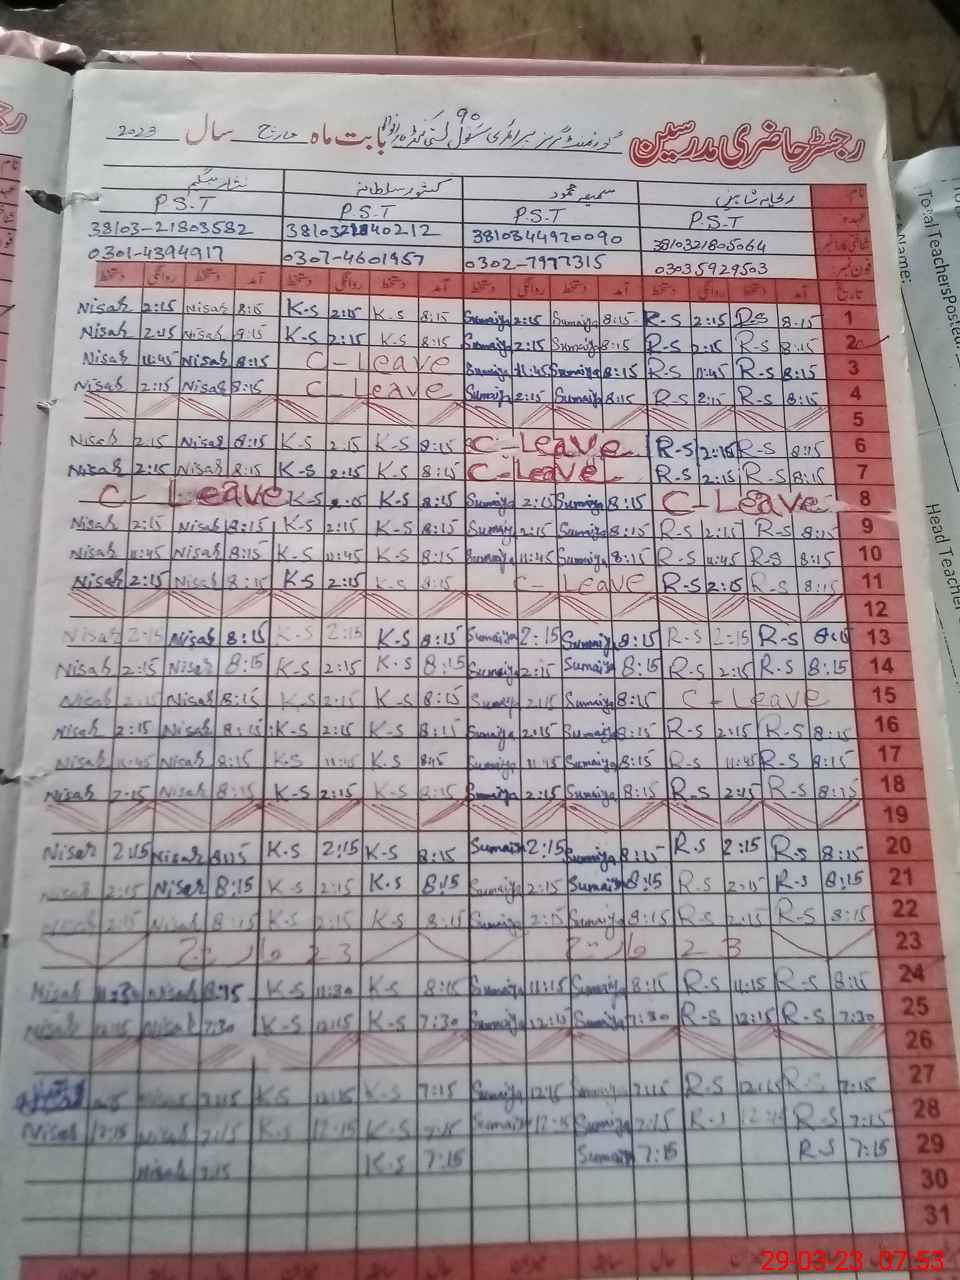 رجسٹر حاضری مدرسین گورنمنٹ گرلز پرائمری سکول بابت ماہ مارچ سال 2023
نام ریحانہ شاہین سمیعہ محمود کشور سلطانہ نثار بیگم
عہدہ P.S.T P.S.T P.S.T P.S.T
شناختی کارڈ نمبر 3810321805064 3810344970090 38103 40212 38103-21803582
فون نمبر 03035929503 0302-7977315 0307-4601957 0301-4394917
تاریخ آمد دستخط روانگی دستخط آمد دستخط روانگی دستخط آمد دستخط روانگی دستخط آمد دستخط روانگی دستخط
Nisah 2:15 Nisah 8:15 K-S 2:15 K-S 8:15 Sumaiya 2:15 Sumaiya 8:15 R-S 2:15 R-S 8:15 1
Nisah 2:15 Nisah 8:15 K-S 2:15 K-S 8:15 Sumaiya 2:15 Sumaiya 8:15 R-S 2:15 R-S 8:15 2
Nisah 11:45 Nisah 8:15 C-Leave Sumaiya 11:45 Sumaiya 8:15 R-S 11:45 R-S 8:15 3
Nisah 2:15 Nisah 8:15 C-Leave Sumaiya 2:15 Sumaiya 8:15 R-S 2:15 R-S 8:15 4
5
Nisah 2:15 Nisah 8:15 K-S 2:15 K-S 8:15 C-Leave R-S 2:15 R-S 8:15 6
Nisah 2:15 Nisah 8:15 K-S 2:15 K-S 8:15 C-Leave R-S 2:15 R-S 8:15 7
C-Leave K-S 2:15 K-S 8:15 Sumaiya 2:15 Sumaiya 8:15 C-Leave 8
Nisah 2:15 Nisah 8:15 K-S 2:15 K-S 8:15 Sumaiya 2:15 Sumaiya 8:15 R-S 2:15 R-S 8:15 9
Nisah 11:45 Nisah 8:15 K-S 11:45 K-S 8:15 Sumaiya 11:45 Sumaiya 8:15 R-S 11:45 R-S 8:15 10
Nisah 2:15 Nisah 8:15 K-S 2:15 K-S 8:15 C-Leave R-S 2:15 R-S 8:15 11
12
Nisah 2:15 Nisah 8:15 K-S 2:15 K-S 8:15 Sumaiya 2:15 Sumaiya 8:15 R-S 2:15 R-S 8:15 13
Nisah 2:15 Nisah 8:15 K-S 2:15 K-S 8:15 Sumaiya 2:15 Sumaiya 8:15 R-S 2:15 R-S 8:15 14
Nisah 2:15 Nisah 8:15 K-S 2:15 K-S 8:15 Sumaiya 2:15 Sumaiya 8:15 C-Leave 15
Nisah 2:15 Nisah 8:15 K-S 2:15 K-S 8:15 Sumaiya 2:15 Sumaiya 8:15 R-S 2:15 R-S 8:15 16
Nisah 11:45 Nisah 8:15 K-S 11:45 K-S 8:45 Sumaiya 11:45 Sumaiya 8:15 R-S 11:45 R-S 8:15 17
Nisah 2:15 Nisah 8:15 K-S 2:15 K-S 8:15 Sumaiya 2:15 Sumaiya 8:15 R-S 2:15 R-S 8:15 18
19
Nisar 2:15 Nisar 8:15 K-S 2:15 K-S 8:15 Sumaiya 2:15 Sumaiya 8:15 R-S 2:15 R-S 8:15 20
Nisar 2:15 Nisar 8:15 K-S 2:15 K-S 8:15 Sumaiya 2:15 Sumaiya 8:15 R-S 2:15 R-S 8:15 21
Nisah 2:15 Nisah 8:15 K-S 2:15 K-S 8:15 Sumaiya 2:15 Sumaiya 8:15 R-S 2:15 R-S 8:15 22
23 مارچ 23 مارچ 23
Nisah 11:30 Nisah 8:15 K-S 11:30 K-S 8:15 Sumaiya 11:15 Sumaiya 8:15 R-S 11:15 R-S 8:15 24
Nisah 12:15 Nisah 7:30 K-S 12:15 K-S 7:30 Sumaiya 12:15 Sumaiya 7:30 R-S 12:15 R-S 7:30 25
26
7:15 K-S 12:15 K-S 7:15 Sumaiya 12:15 7:15 R-S 12:15 R-S 7:15 27
Nisah 12:15 Nisah 7:15 K-S 12:15 K-S 7:15 Sumaiya 12:15 Sumaiya 7:15 R-S R-S 7:15 28
Nisah 7:15 K-S 7:15 Sumaiya 7:15 R-S 7:15 29
30
31
Total Teachers Posted
Name:
Head Teacher
29-03-23 07:53